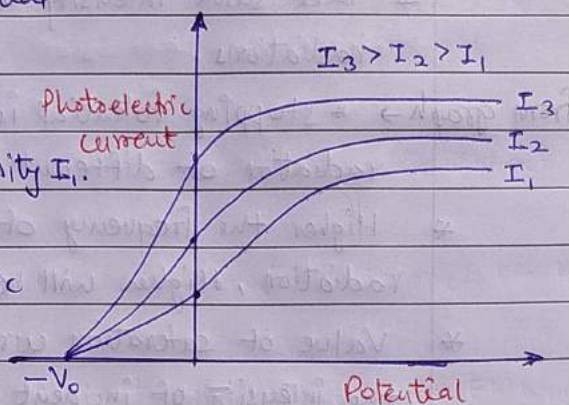 I₃ > I₂ > I₁
Photoelectric
current
I₃
I₂
I₁
sity I₁.
c
-V₀
Potential